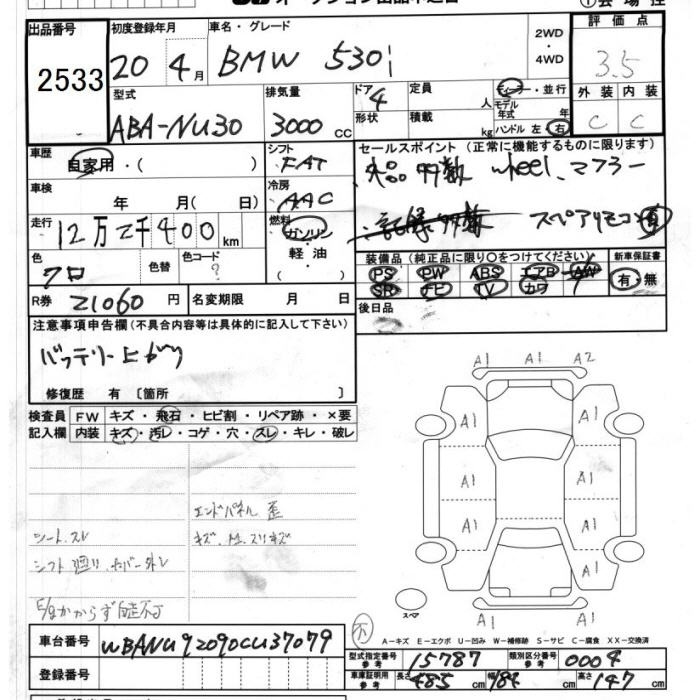 出品番号
2533
初度登録年月
20 4月
車名・グレード
BMW 530i
2WD
・
4WD
評価点
3.5
外装 内装
C C
型式
ABA-NU30
排気量
3000cc
ドア
4
形状
定員 人
積載 kg
ディーラー・並行
モデル年式 年
ハンドル 左・右
車歴
自家用・( )
シフト
FAT
セールスポイント (正常に機能するものに限ります)
wheel、マフラー
スペアリモコン有
車検
年 月( 日)
冷房
AAC
走行
12万2千400km
燃料
ガソリン
・
軽油
( )
色
クロ
色替
色コード
?
装備品 (純正品に限り○をつけてください)
PS PW ABS エアB AW
SR ナビ TV カワ
新車保証書
有・無
R券 21060円
名変期限 月 日
後日品
注意事項申告欄(不具合内容等は具体的に記入して下さい)
バッテリー上がり
修復歴 有 〔箇所 〕
検査員記入欄
FW キズ・飛石・ヒビ割・リペア跡・×要
内装 キズ・汚レ・コゲ・穴・スレ・キレ・破レ
エンドパネル 歪
シート、スレ
シフト廻り、カバー外レ
E/gかからず自走不可
A1 A1 A2
A1 A1
A1 A1
A1 A1
A1 A1
A1 A1 A1
スペア
不
A－キズ E－エクボ U－凹み W－補修跡 S－サビ C－腐食 XX－交換済
車台番号
WBANU92090CU37079
登録番号
型式指定番号 参考 15787
類別区分番号 参考 0004
車庫証明用 参考 長さ 485cm 幅 184cm 高さ 147cm